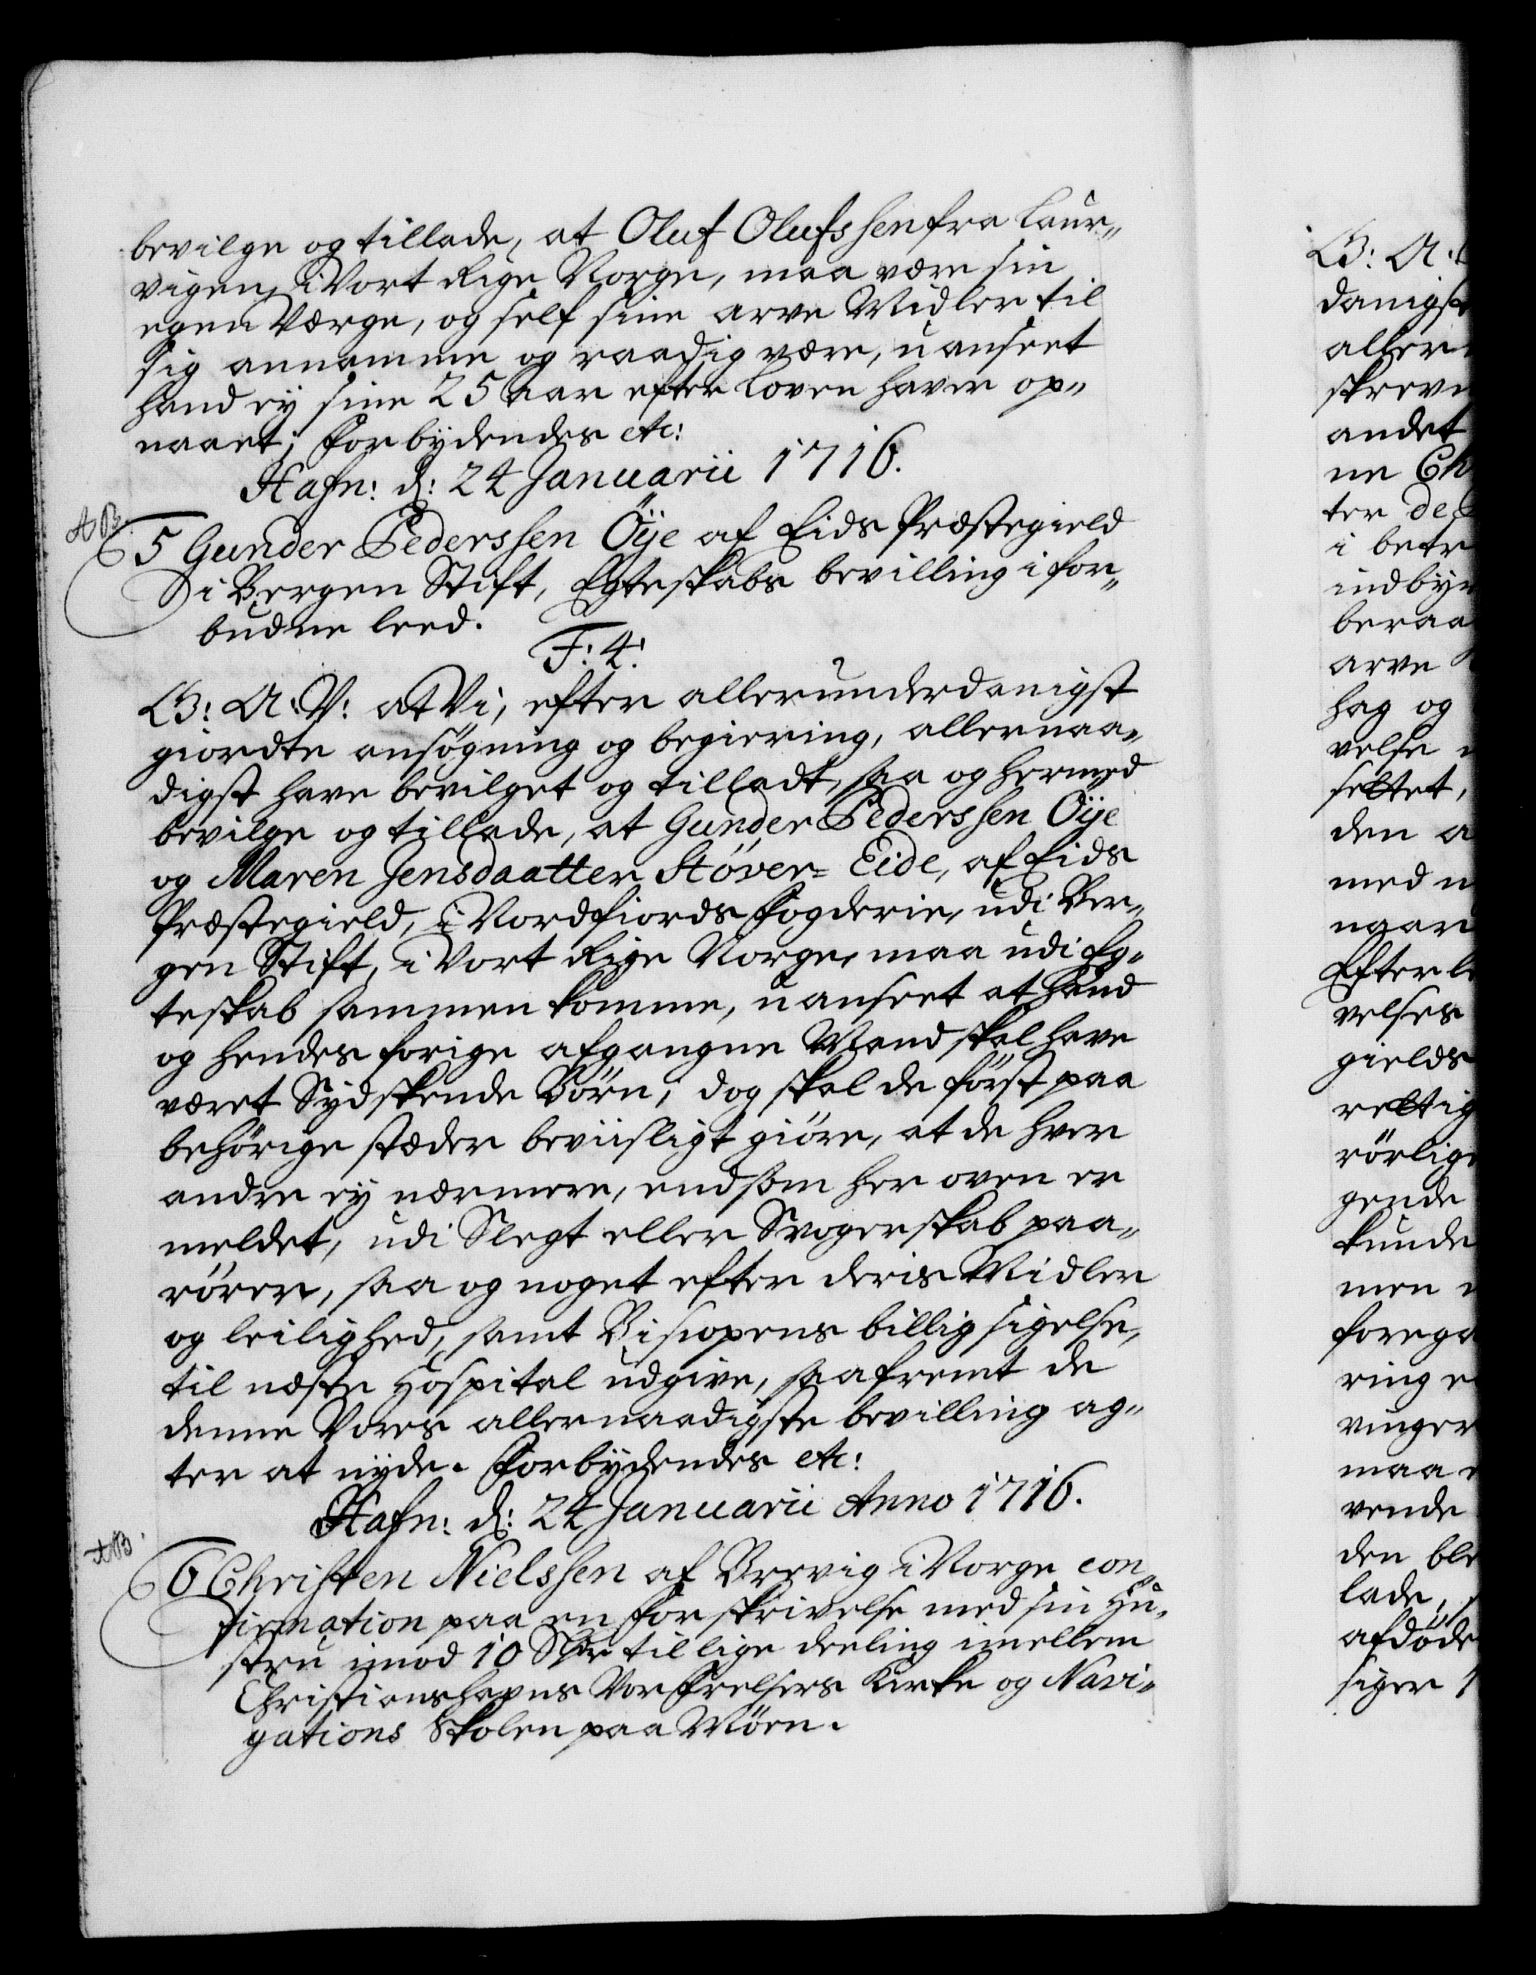 bevilge og tillade, at Oluf Olufssen fra Laur„
vigen, i Vort Rige Norge, maa være sin
egen Værge, og self sine arve Midler til
sig annamme og raadig være, uanseet
hand ey sine 25 aar efter Loven haver op„
naaet; Forbydendes etc:
Hafn: d: 24 Januarii 1716.
5 Gunder Pederssen Öÿe af Eids Præstegield
i Bergen Stift, Egteskabs bevilling i for„
budne leed.
F: 4:
G: A: V: at Vi, efter allerunderdanigst
giordte ansøgning og begiering, allernaa„
digst have bevilget og tilladt, saa og hermed
bevilge og tillade, at Gunder Pederssen Öÿe
og Maren Jensdaatter Støver= Eide, af Eids
Præstegield, i Nordfiords Fogderie, udi Ber„
gen Stift, i Vort Rige Norge, maa udi Eg„
teskab sammen komme, uanseet at hand
og hendes forige afgangne Mand skal have
været Sydskende Börn; dog skal de först paa
behörige stæder beviisligt giöre, at de hver
andre ey nærmere, end som her oven er
meldet, udi Slegt eller Svogerskab paa„
rörer, saa og noget efter deris Midler
og leilighed, samt Biscopens billig sigelse,
til næste Hospital udgive, saafremt de
denne Vores allernaadigste bevilling ag„
ter at nyde. Forbydendes etc:
Hafn: d: 24 Januarii Anno 1716.
6 Christen Nielssen af Brevig i Norge con„
firmation paa en Forskrivelse med sin Hu„
stru imod 10 Sldr til lige deeling imellem
Christianshavns Vor Frelsers Kirke og Navi„
gations Skolen paa Möen.
G: A:
danigst
aller
skreve
andet
ne Ch
ter de
i betr
indbyr
beraa
arve
hag og
velse
settet,
den a
med
Efterle
velses
gields
rettig
rörlige
gende
kunde
men
forega
ring
vinger
maa
vende
den ble
lade,
afdöde
siger